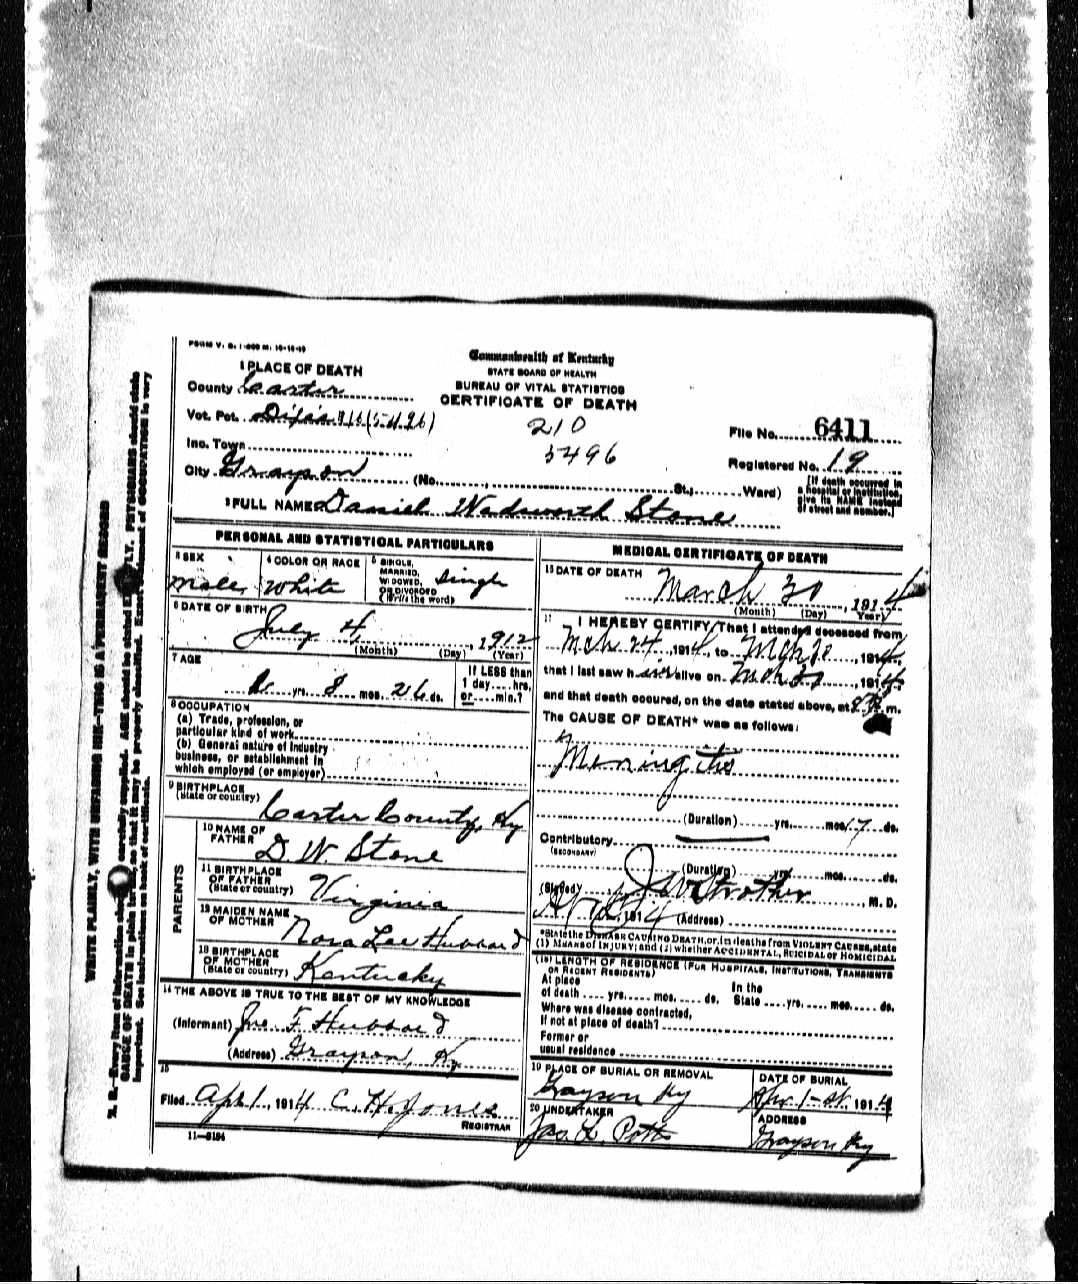 FORM V. S. 1-
Commonwealth of Kentucky
STATE BOARD OF HEALTH
BUREAU OF VITAL STATISTICS
CERTIFICATE OF DEATH
1 PLACE OF DEATH
County Carter
Vot. Pct.
Inc. Town
City Grayson (No. , St.; Ward)
210
5496
File No. 6411
Registered No. 19
[If death occurred in
a hospital or institution,
give its NAME instead
of street and number.]
2 FULL NAME Daniel Wadsworth Stone
PERSONAL AND STATISTICAL PARTICULARS
3 SEX
Male
4 COLOR OR RACE
White
5 SINGLE,
MARRIED,
WIDOWED,
OR DIVORCED
(Write the word)
Single
6 DATE OF BIRTH
July 4, , 1912
(Month) (Day) (Year)
7 AGE
yrs. 8 mos. 26 ds.
If LESS than
1 day.... hrs.
or.... min.?
8 OCCUPATION
(a) Trade, profession, or
particular kind of work
(b) General nature of industry
business, or establishment in
which employed (or employer)
9 BIRTHPLACE
(State or country)
Carter County, Ky
PARENTS
10 NAME OF
FATHER
D. W. Stone
11 BIRTHPLACE
OF FATHER
(State or country)
Virginia
12 MAIDEN NAME
OF MOTHER
Nora Lee Hubbard
13 BIRTHPLACE
OF MOTHER
(State or country)
Kentucky
14 THE ABOVE IS TRUE TO THE BEST OF MY KNOWLEDGE
(Informant) Jno. F. Hubbard
(Address) Grayson, Ky
15
Filed Apl 1, 1914 C. H. Jones
REGISTRAR
11—5184
MEDICAL CERTIFICATE OF DEATH
16 DATE OF DEATH
March 30 , 1914
(Month) (Day) (Year)
17 I HEREBY CERTIFY, That I attended deceased from
Mch 24, 1914, to Mch 30, 1914,
that I last saw him alive on Mch 30, 1914,
and that death occured, on the date stated above, at m.
The CAUSE OF DEATH* was as follows:
Meningitis
(Duration) yrs. mos. 17 ds.
Contributory
(SECONDARY)
(Duration) yrs. mos. ds.
(Signed) J W Strother , M. D.
1914 (Address)
*State the DISEASE CAUSING DEATH, or, in deaths from VIOLENT CAUSES, state
(1) MEANS of INJURY; and (2) whether ACCIDENTAL, SUICIDAL or HOMICIDAL
18 LENGTH OF RESIDENCE (FOR HOSPITALS, INSTITUTIONS, TRANSIENTS
OR RECENT RESIDENTS)
At place
of death .... yrs. .... mos. .... ds.
In the
State .... yrs. .... mos. .... ds.
Where was disease contracted,
If not at place of death?
Former or
usual residence
19 PLACE OF BURIAL OR REMOVAL
Grayson Ky
DATE OF BURIAL
Apr 1-st, 1914
20 UNDERTAKER
Jas. L Potts
ADDRESS
Grayson Ky
WRITE PLAINLY, WITH UNFADING INK—THIS IS A PERMANENT RECORD